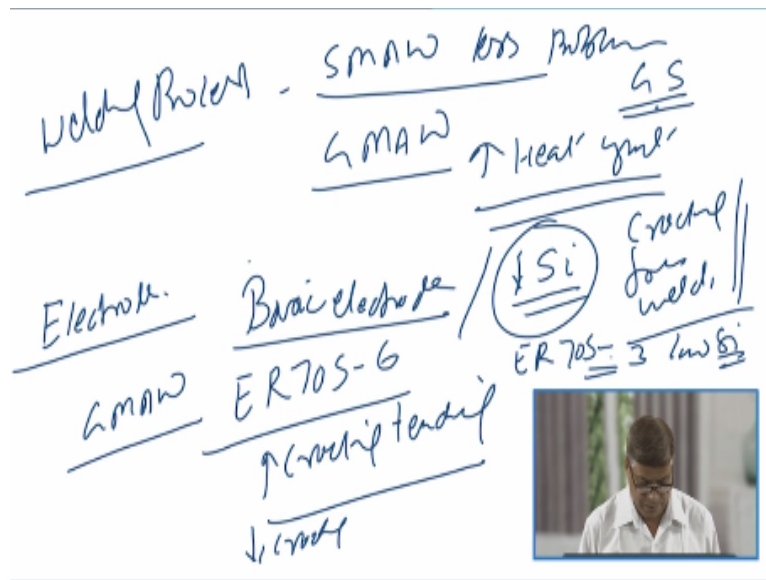 Welding Process - SMAW less Problem
GS
GMAW ↑ Heat
Electrode. Basic electrode / ↓ Si Cracking
free
weld.
GMAW ER70S-6 ER70S- 3 low Si
↑ Cracking tendency
↓ crack